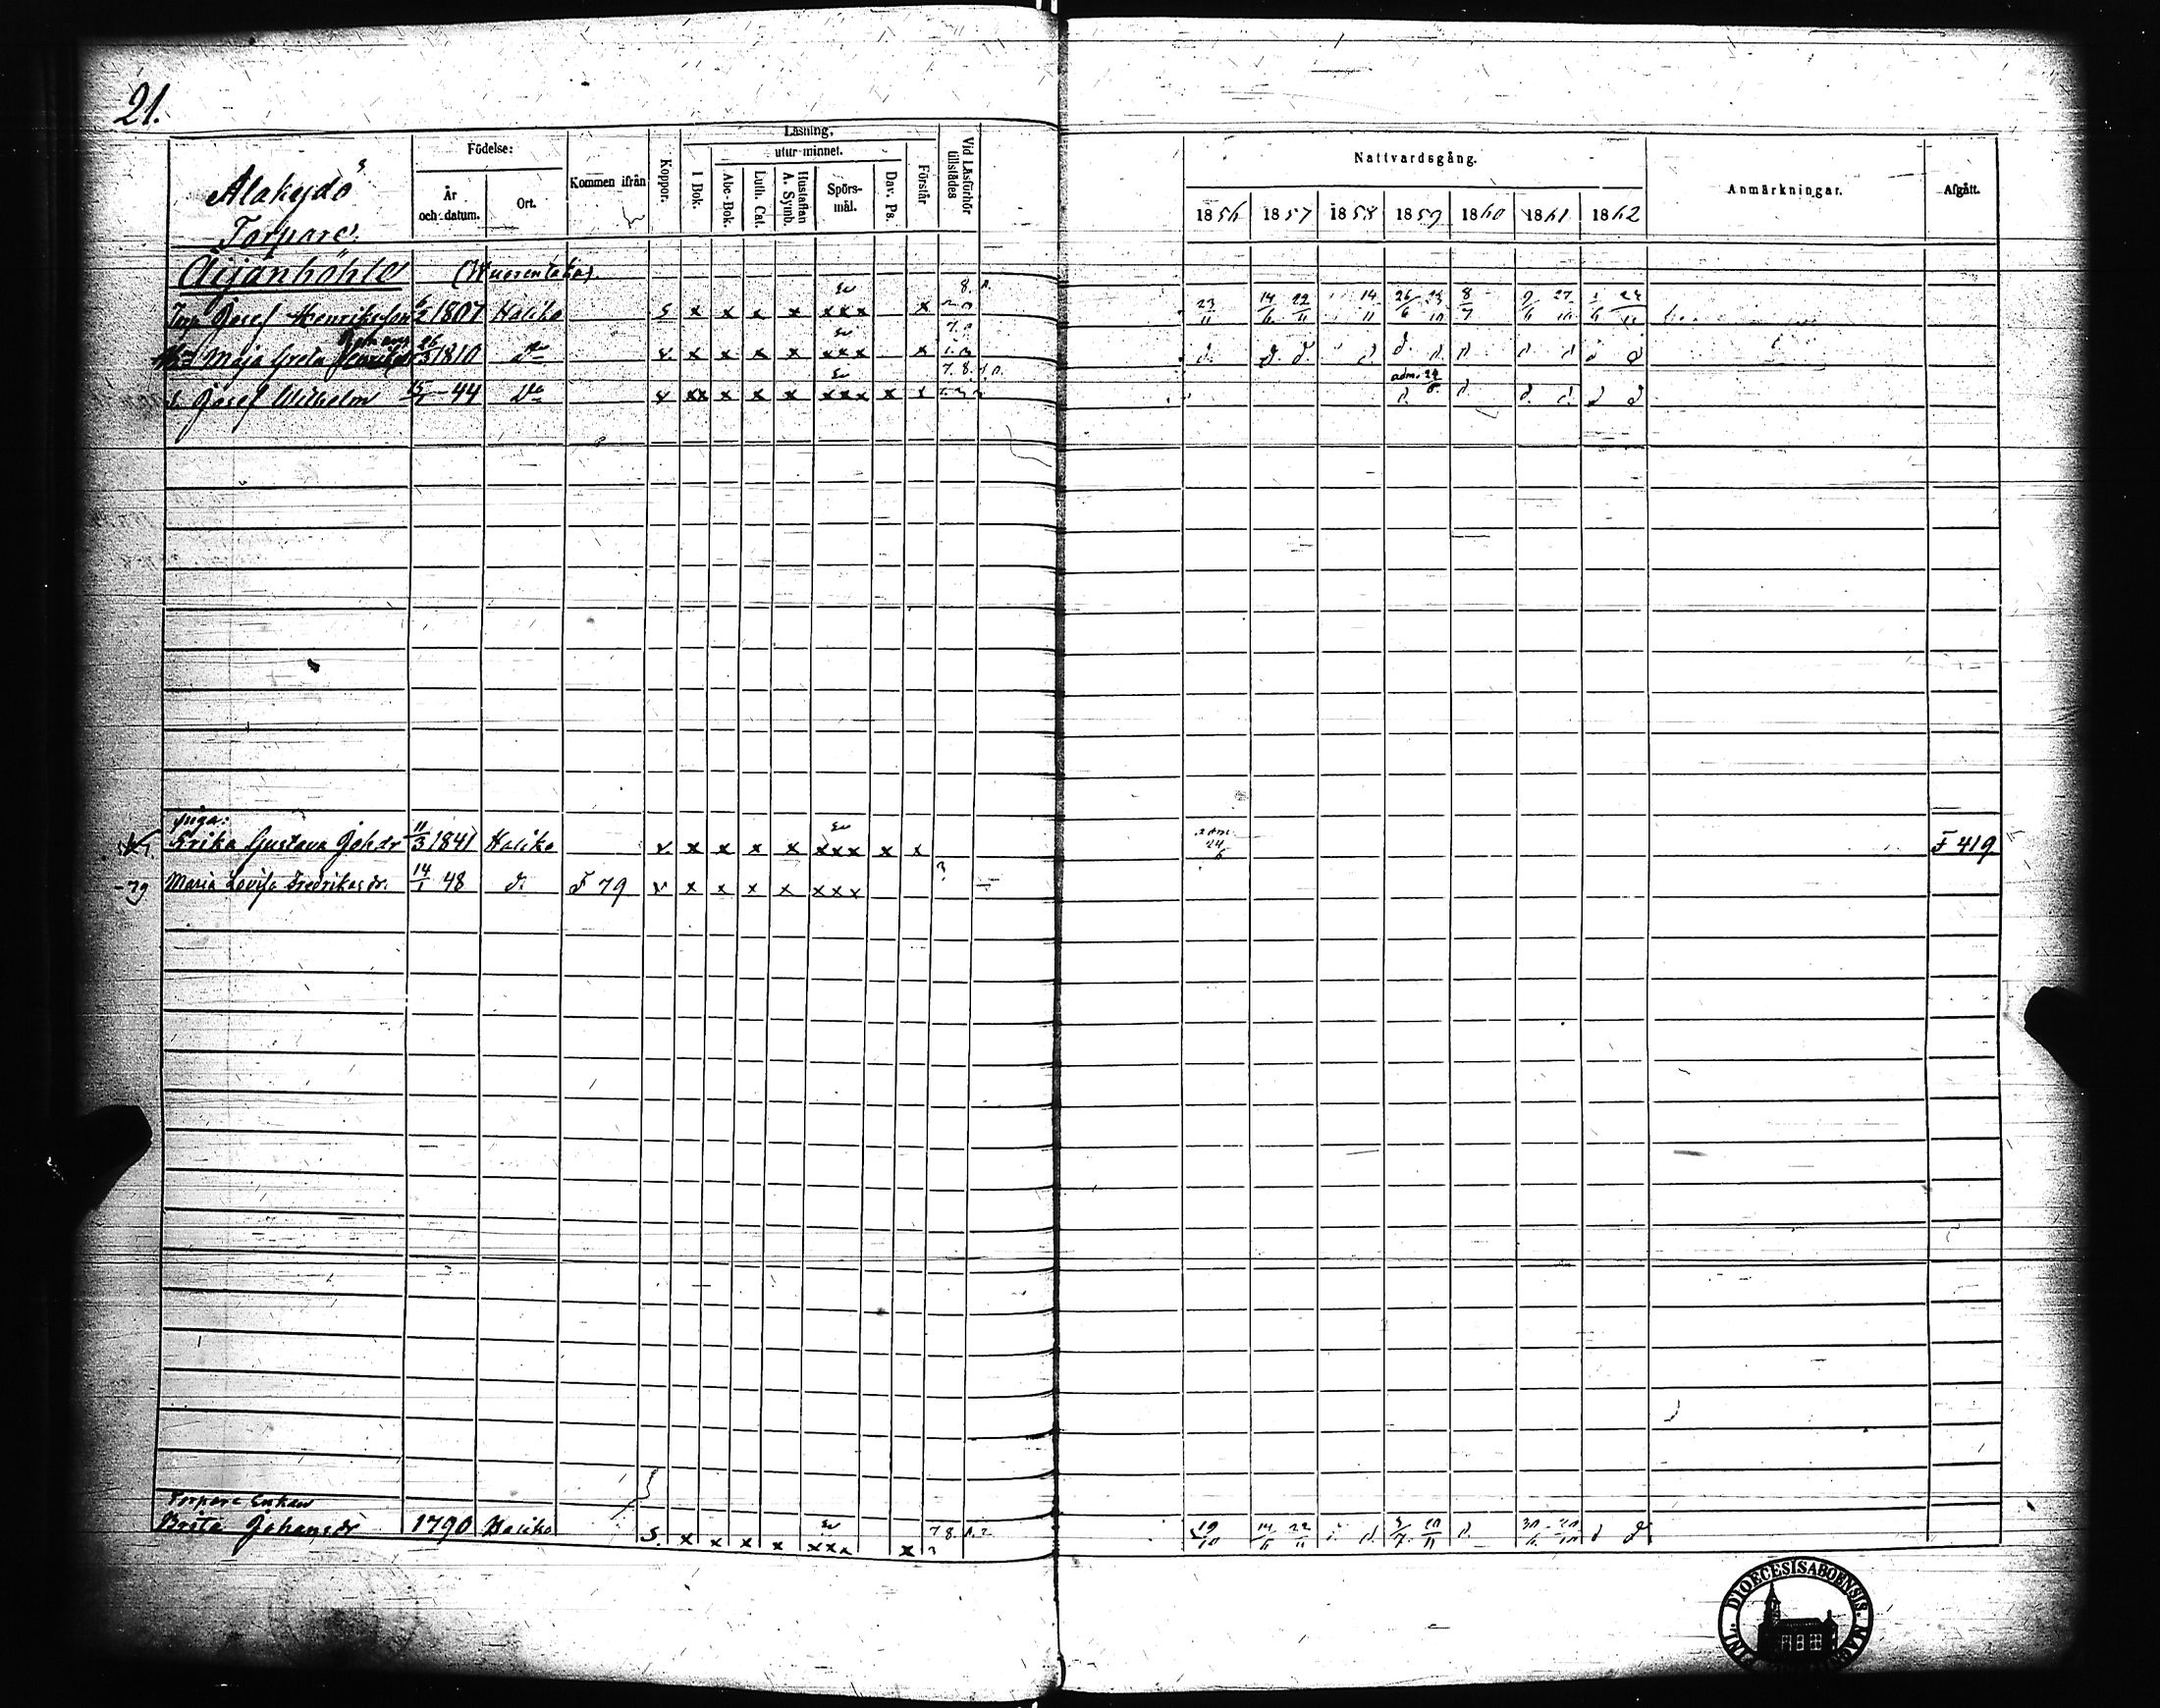 21.
Alakydö
Torpare
Födelse:
År och datum.
Ort.
Kommen ifrån
Koppor.
Läsning,
utur minnet.
I Bok.
Abc-Bok.
Luth. Cat.
Hustaflan A. Symb.
Spörs-mål.
Dav. Ps.
Förstår
Vid Läsförhör tillstädes
Nattvardsgång.
1856 1857 1858 1859 1860 1861 1862
Anmärkningar.
Afgått.
Äijänhöhle
Torp Josef Henriksson 6/2 1807 Haliko s x x x x xxx x 23/11 14/6 22/11 14/11 26/6 23/10 8/7 9/6 27/10
Maja Greta 26/3 1810 do v x x x x xxx x d. d. d. d d. d. d. d d d d
adm. 24/6
s. Josef Wilhelm 15/1 44 do v xx x x x xxx x x d. d. d. d. d d
piga:
Erika Gustava Johdr 11/3 1841 Haliko v. x x x x xxx x x adm. 24/6 F 419.
-79 Maria Lovisa Fredriksdr. 14/1 48 d. F 79 v x x x x xxx 3
Torpare Enkan
Brita Johansdr 1790 Haliko s. x x x x xxx x 7 8. 19/10 14/6 22/11 d. 3/7 20/11 d. 30/6 20/10 d d
DIOECESIS ABOENSIS.